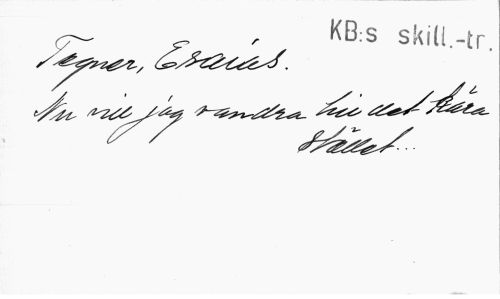 KB:s skill.-tr.
Tegner, Esaias.
Nu vill jag vandra till det kära
stället...